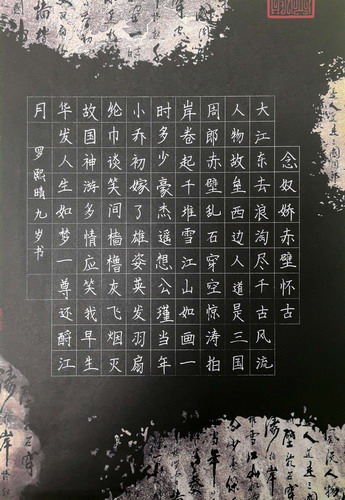 念奴娇赤壁怀古
大江东去浪淘尽千古风流
人物故垒西边人道是三国
周郎赤壁乱石穿空惊涛拍
岸卷起千堆雪江山如画一
时多少豪杰遥想公瑾当年
小乔初嫁了雄姿英发羽扇
纶巾谈笑间樯橹灰飞烟灭
故国神游多情应笑我早生
华发人生如梦一尊还酹江
月
罗熙晴九岁书